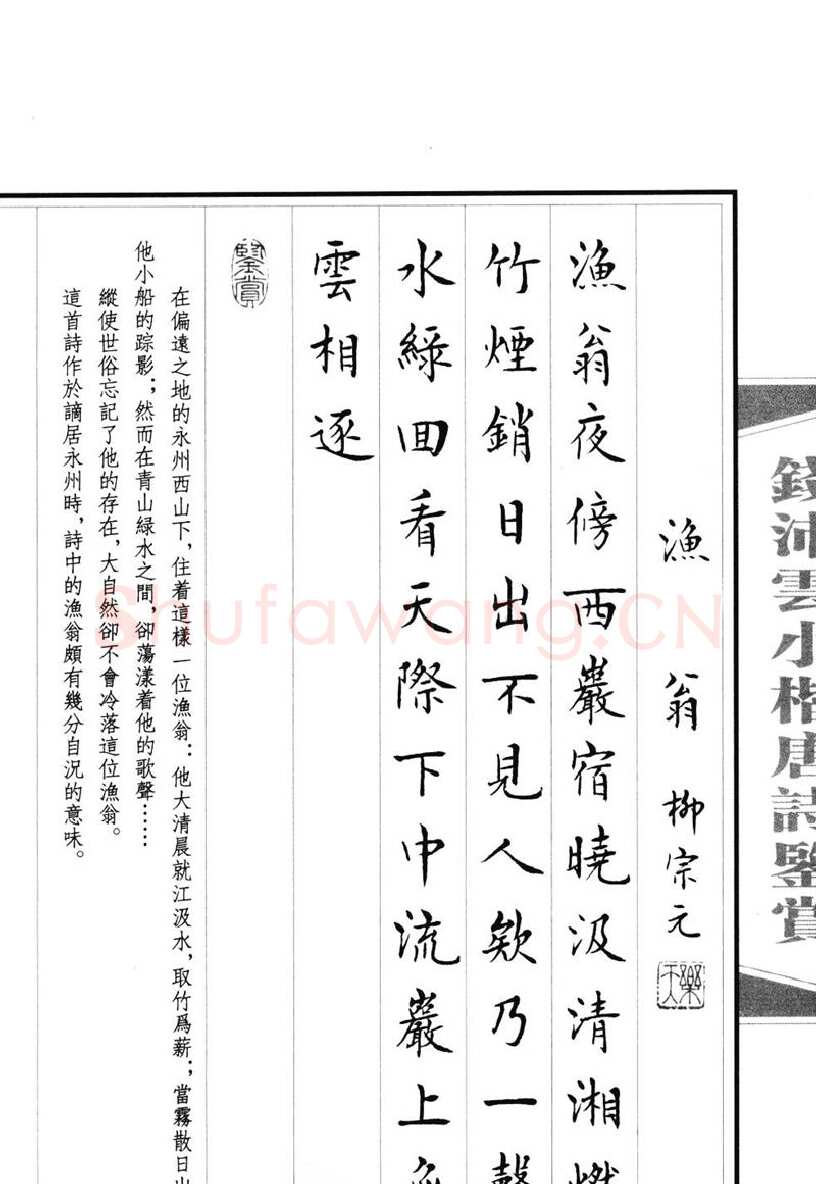 錢沛雲小楷唐詩鑒賞
漁翁 柳宗元
樂天
漁翁夜傍西巖宿曉汲清湘燃
竹煙銷日出不見人欸乃一聲
水綠回看天際下中流巖上無
雲相逐
鑒賞
在偏遠之地的永州西山下，住着這樣一位漁翁：他大清晨就江汲水，取竹爲薪；當霧散日出
他小船的踪影；然而在青山綠水之間，卻蕩漾着他的歌聲……
縱使世俗忘記了他的存在，大自然卻不會冷落這位漁翁。
這首詩作於謫居永州時，詩中的漁翁頗有幾分自況的意味。
Shufawang.CN